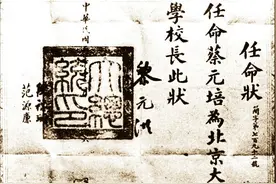 任命狀
任命蔡元培為北京大
學校長此狀
黎元洪
大總統印
中華民國
范源廉